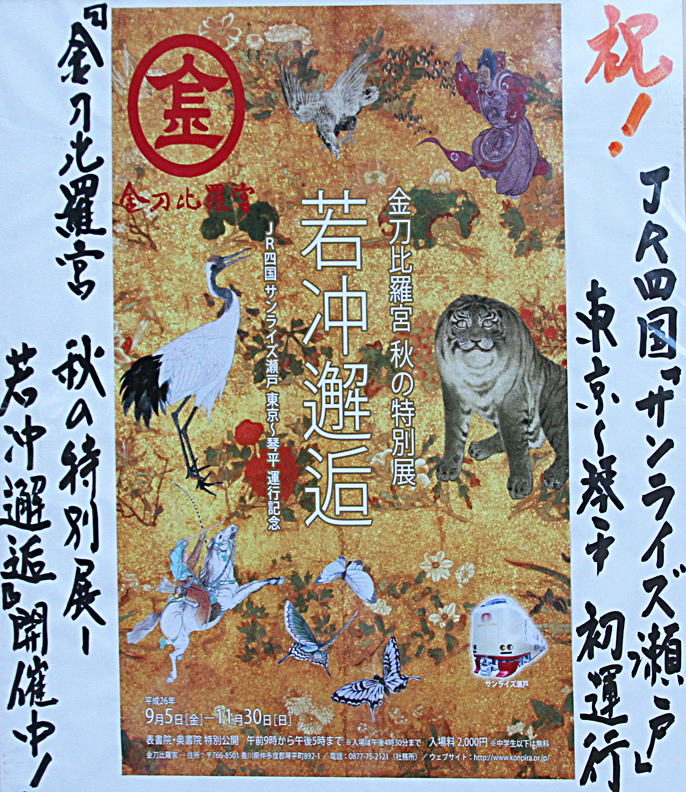 祝！
JR四国『サンライズ瀬戸』
東京～琴平 初運行
金
金刀比羅宮
金刀比羅宮 秋の特別展
若冲邂逅
JR四国 サンライズ瀬戸 東京～琴平 運行記念
サンライズ瀬戸
平成26年
9月5日[金]―11月30日[日]
表書院・奥書院 特別公開 午前9時から午後5時まで ※入場は午後4時30分まで 入場料 2,000円 ※中学生以下は無料
金刀比羅宮 ― 住所：〒766-8501 香川県仲多度郡琴平町892-1 ／ 電話：0877-75-2121（社務所）／ ウェブサイト：http://www.konpira.or.jp/
『金刀比羅宮 秋の特別展ー
若冲邂逅』開催中！